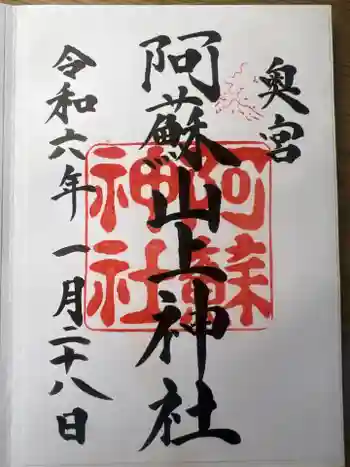 奥宮
阿蘇山上神社
令和六年 一月二十八日
阿蘇
神社